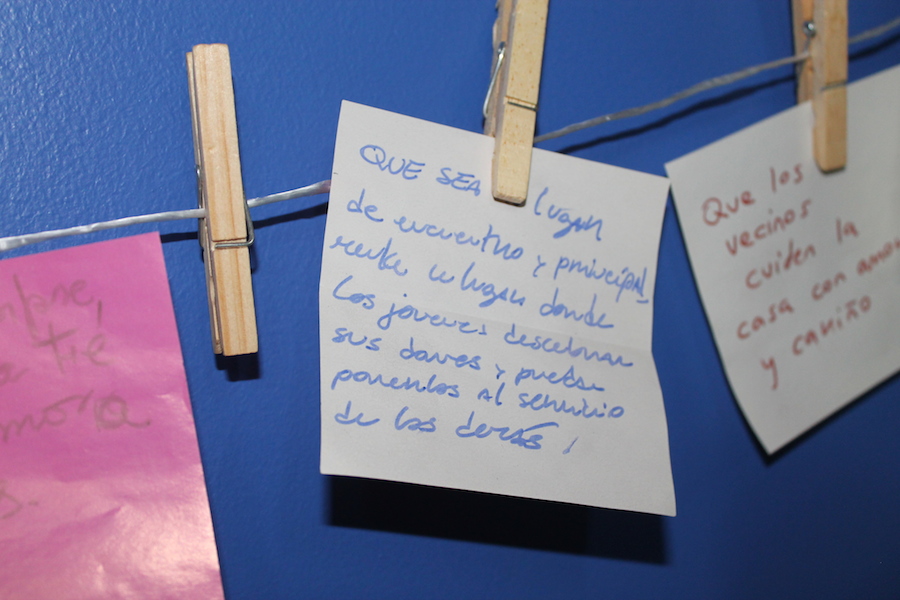 tie
QUE SEA lugar
de encuentro y principal
mente un lugar donde
los jovenes descubran
sus dones y puedan
ponerlos al servicio
de los demás!
Que los
vecinos
cuiden la
casa con amor
y cariño